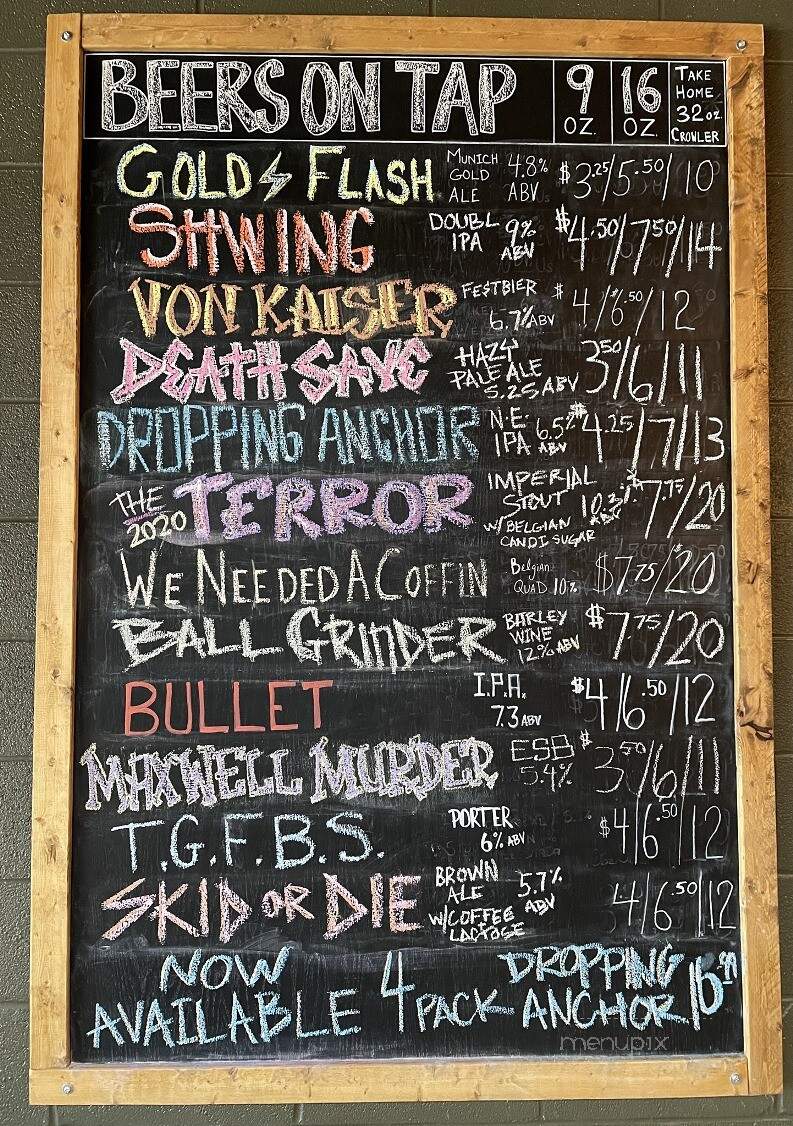 BEERS ON TAP 9 OZ. 16 OZ. TAKE HOME 32 OZ. CROWLER
GOLD FLASH MUNICH GOLD ALE 4.8% ABV $3.25/5.50/10
SHWING DOUBL IPA 9% ABV $4.50/7.50/14
VON KAISER FESTBIER 6.7% ABV $4/6.50/12
DEATH SAVE HAZY PALE ALE 5.25 ABV 3.50/6/11
DROPPING ANCHOR N.E. IPA 6.5% ABV $4.25/7/13
THE 2020 TERROR IMPERIAL STOUT W/BELGIAN CANDI SUGAR 10.3% ABV $7.75/20
WE NEEDED A COFFIN Belgian QUAD 10% $7.75/20
BALL GRINDER BARLEY WINE 12% ABV $7.75/20
BULLET I.P.A. 7.3 ABV $4/6.50/12
MAXWELL MURDER ESB 5.4% $3.50/6/11
T.G.F.B.S. PORTER 6% ABV $4/6.50/12
SKID OR DIE BROWN ALE W/COFFEE LACTOSE 5.7% ABV 4/6.50/12
NOW AVAILABLE 4 PACK DROPPING ANCHOR
menupix